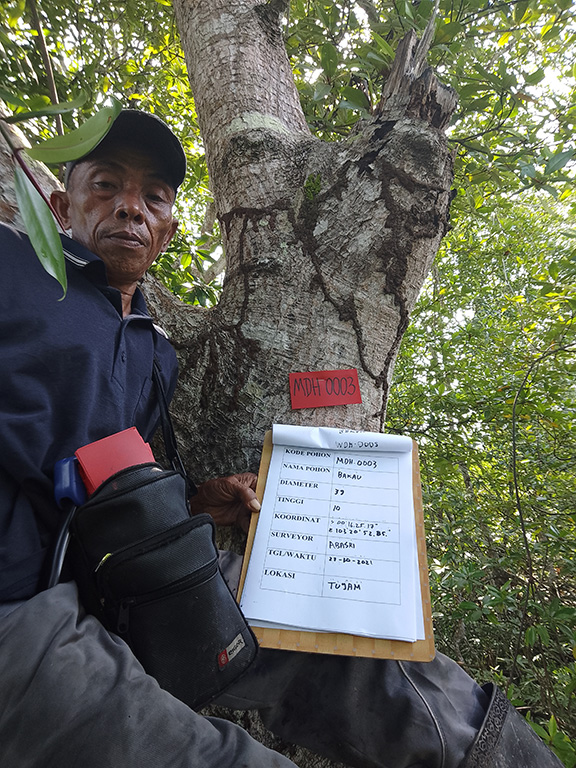 MDH 0003
MDH-0003
KODE POHON MDH.0003
NAMA POHON BAKAU
DIAMETER 39
TINGGI 10
KOORDINAT
SURVEYOR ABASRI
TGL/WAKTU 27-10-2021
LOKASI TUJAM